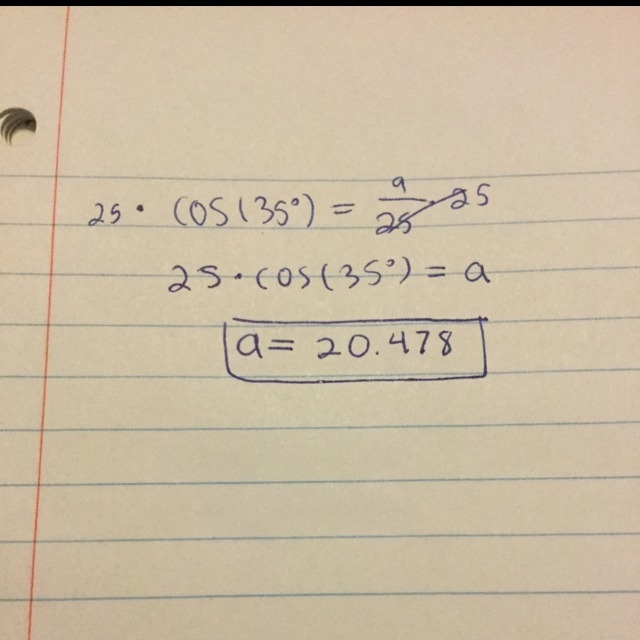 25 · cos(35°) = a/25 · 25
25 · cos(35°) = a
a = 20.478